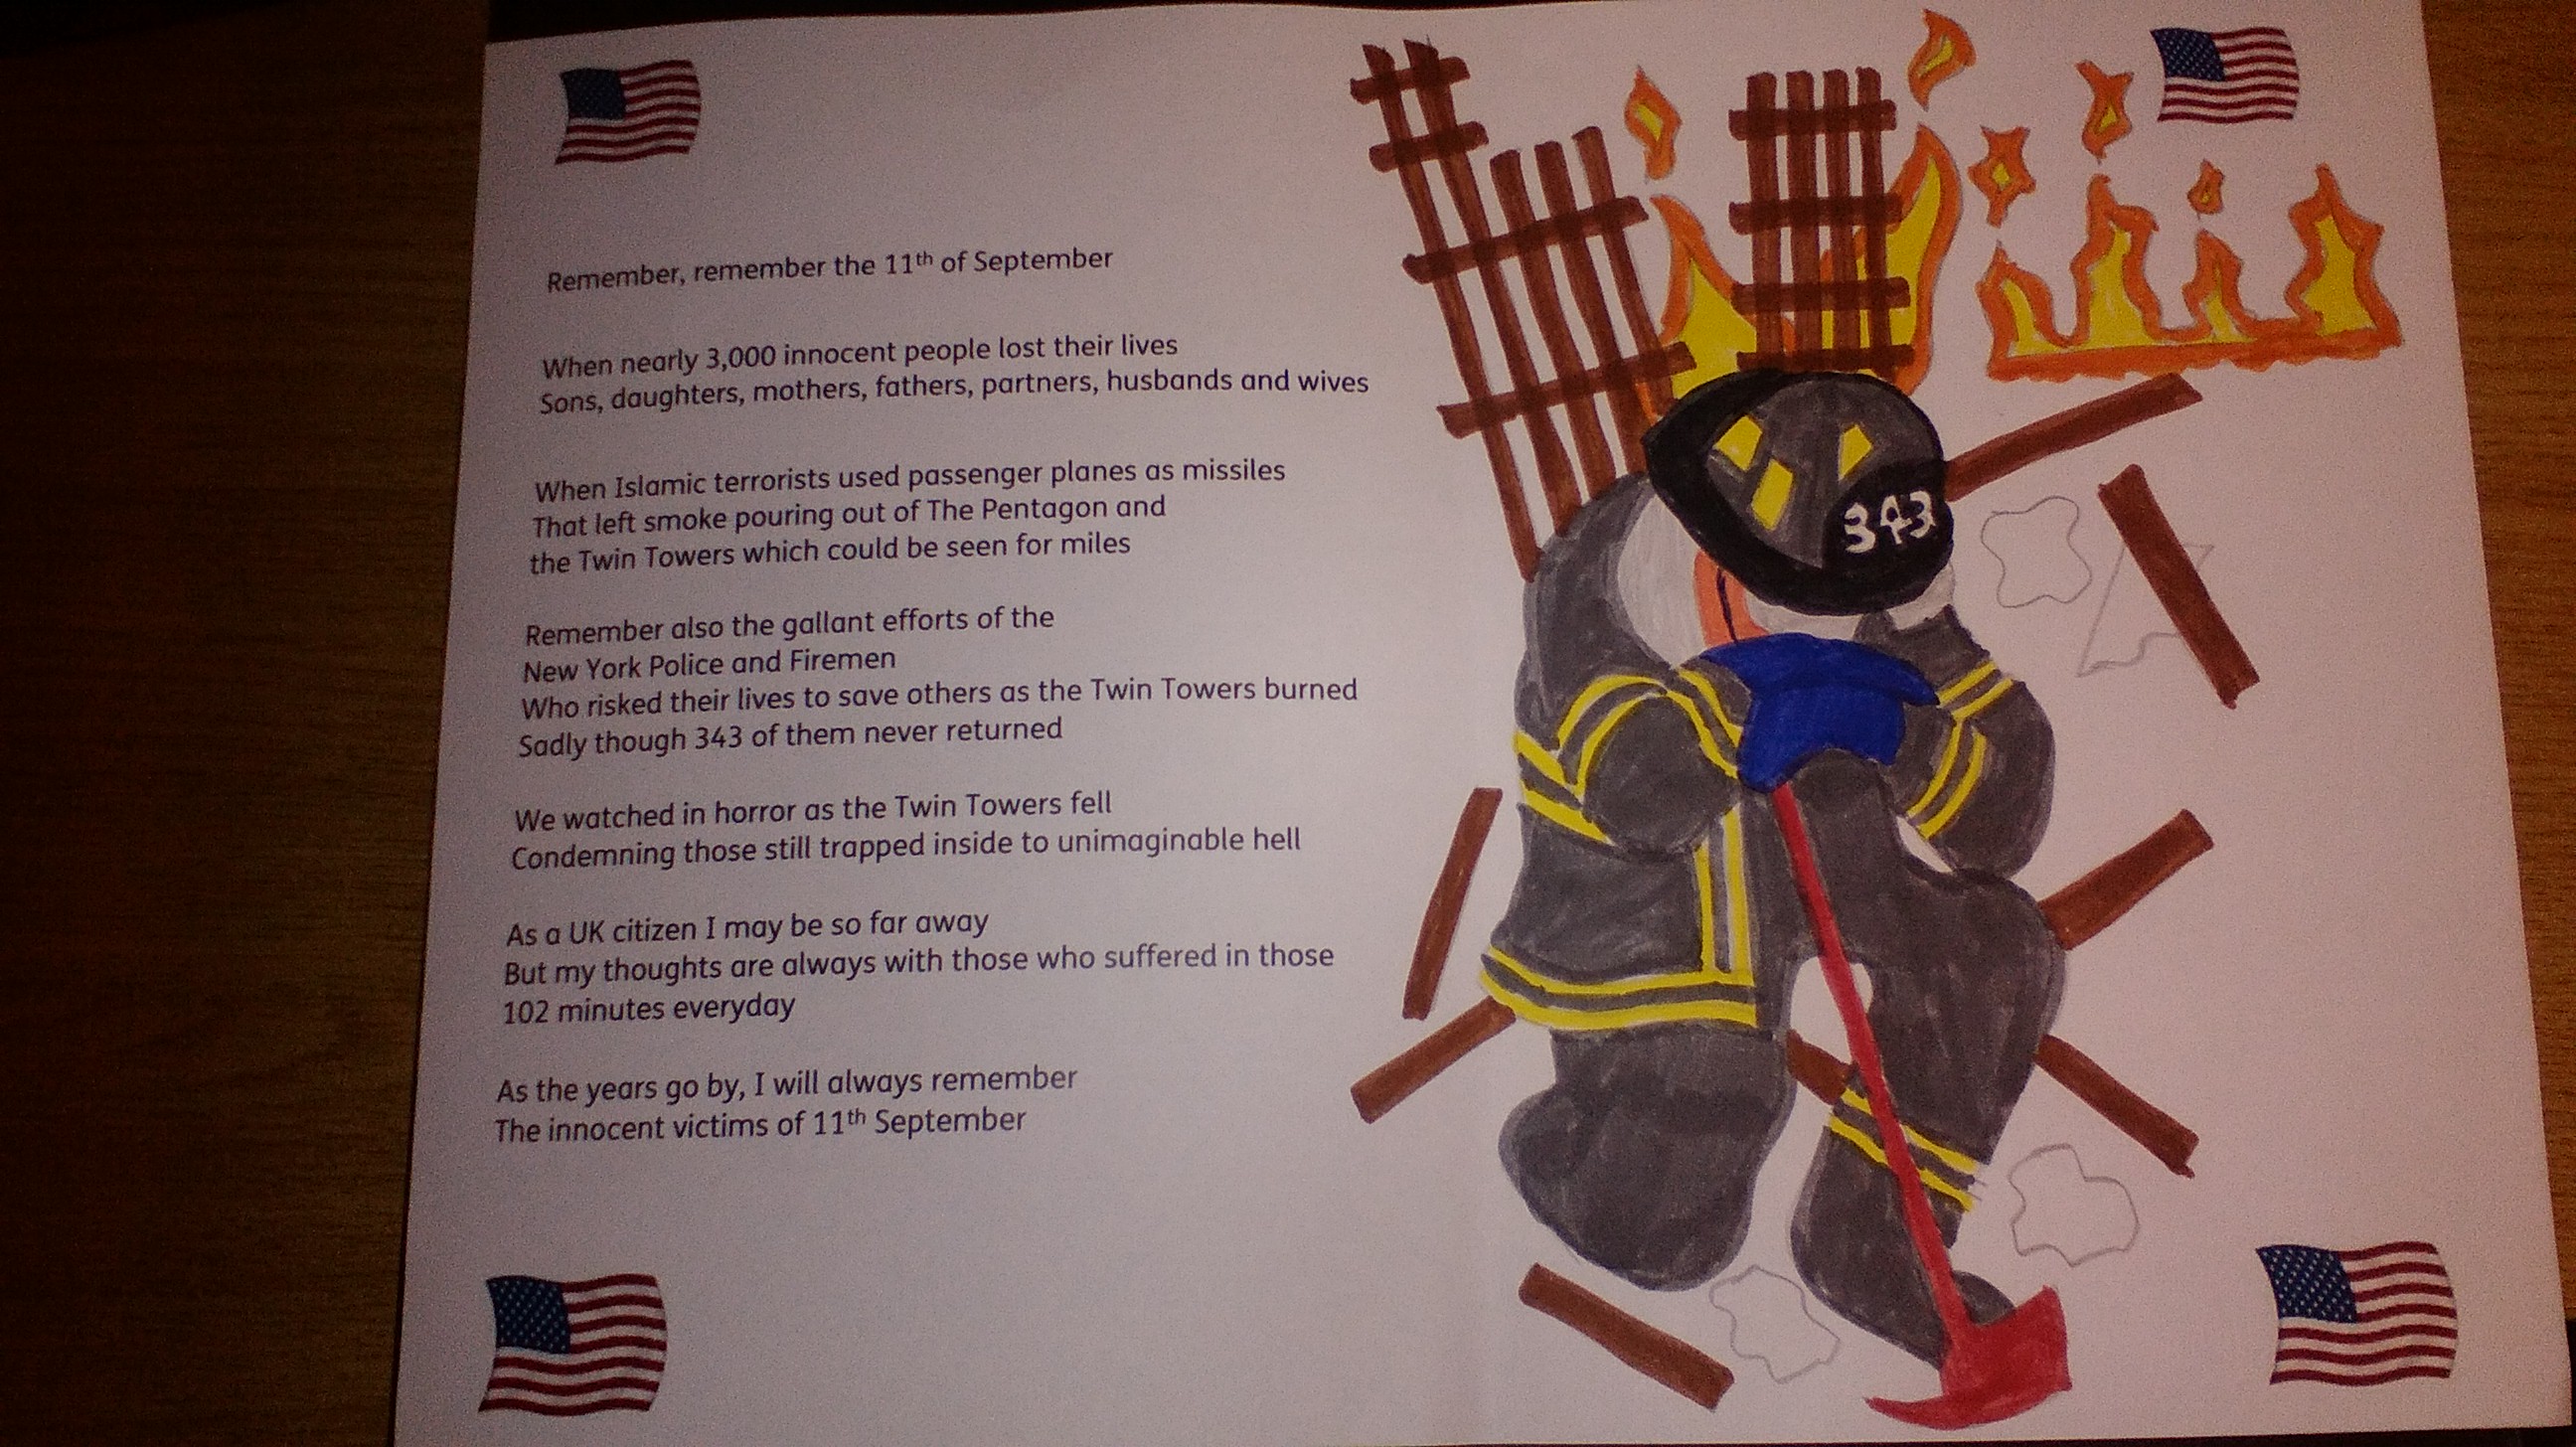 Remember, remember the 11th of September
When nearly 3,000 innocent people lost their lives
Sons, daughters, mothers, fathers, partners, husbands and wives
When Islamic terrorists used passenger planes as missiles
That left smoke pouring out of The Pentagon and
the Twin Towers which could be seen for miles
Remember also the gallant efforts of the
New York Police and Firemen
Who risked their lives to save others as the Twin Towers burned
Sadly though 343 of them never returned
We watched in horror as the Twin Towers fell
Condemning those still trapped inside to unimaginable hell
As a UK citizen I may be so far away
But my thoughts are always with those who suffered in those
102 minutes everyday
As the years go by, I will always remember
The innocent victims of 11th September
343